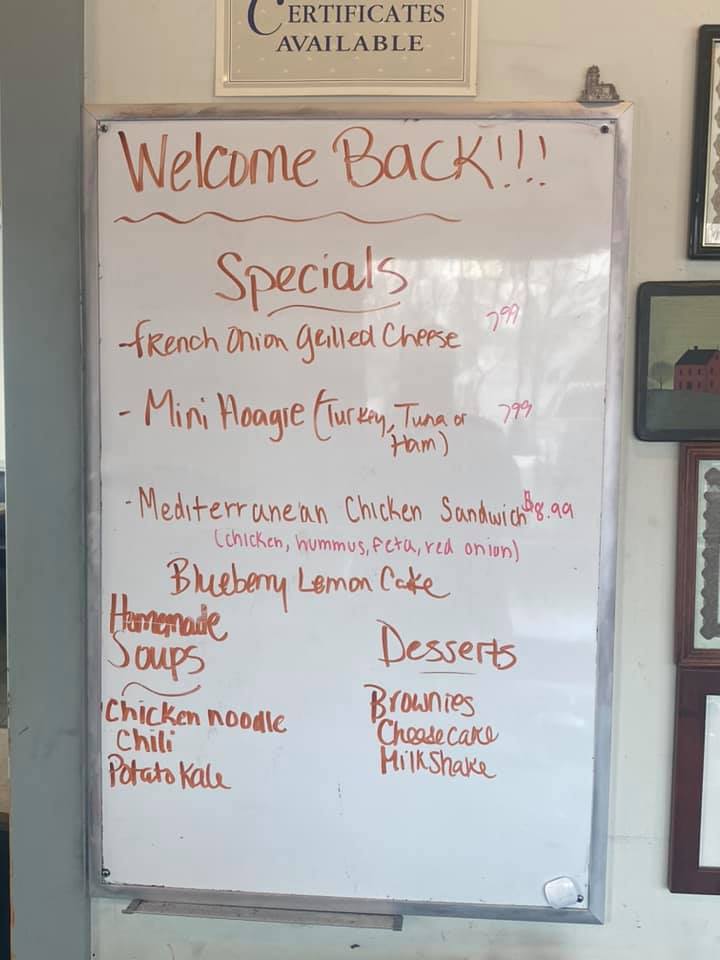 CERTIFICATES
AVAILABLE
Welcome Back!!!
Specials
-French Onion Grilled Cheese 799
- Mini Hoagie (Turkey, Tuna or 799
Ham)
- Mediterranean Chicken Sandwich $8.99
(chicken, hummus, feta, red onion)
Blueberry Lemon Cake
Homemade
Soups
Chicken noodle
Chili
Potato Kale
Desserts
Brownies
Cheesecake
Milkshake